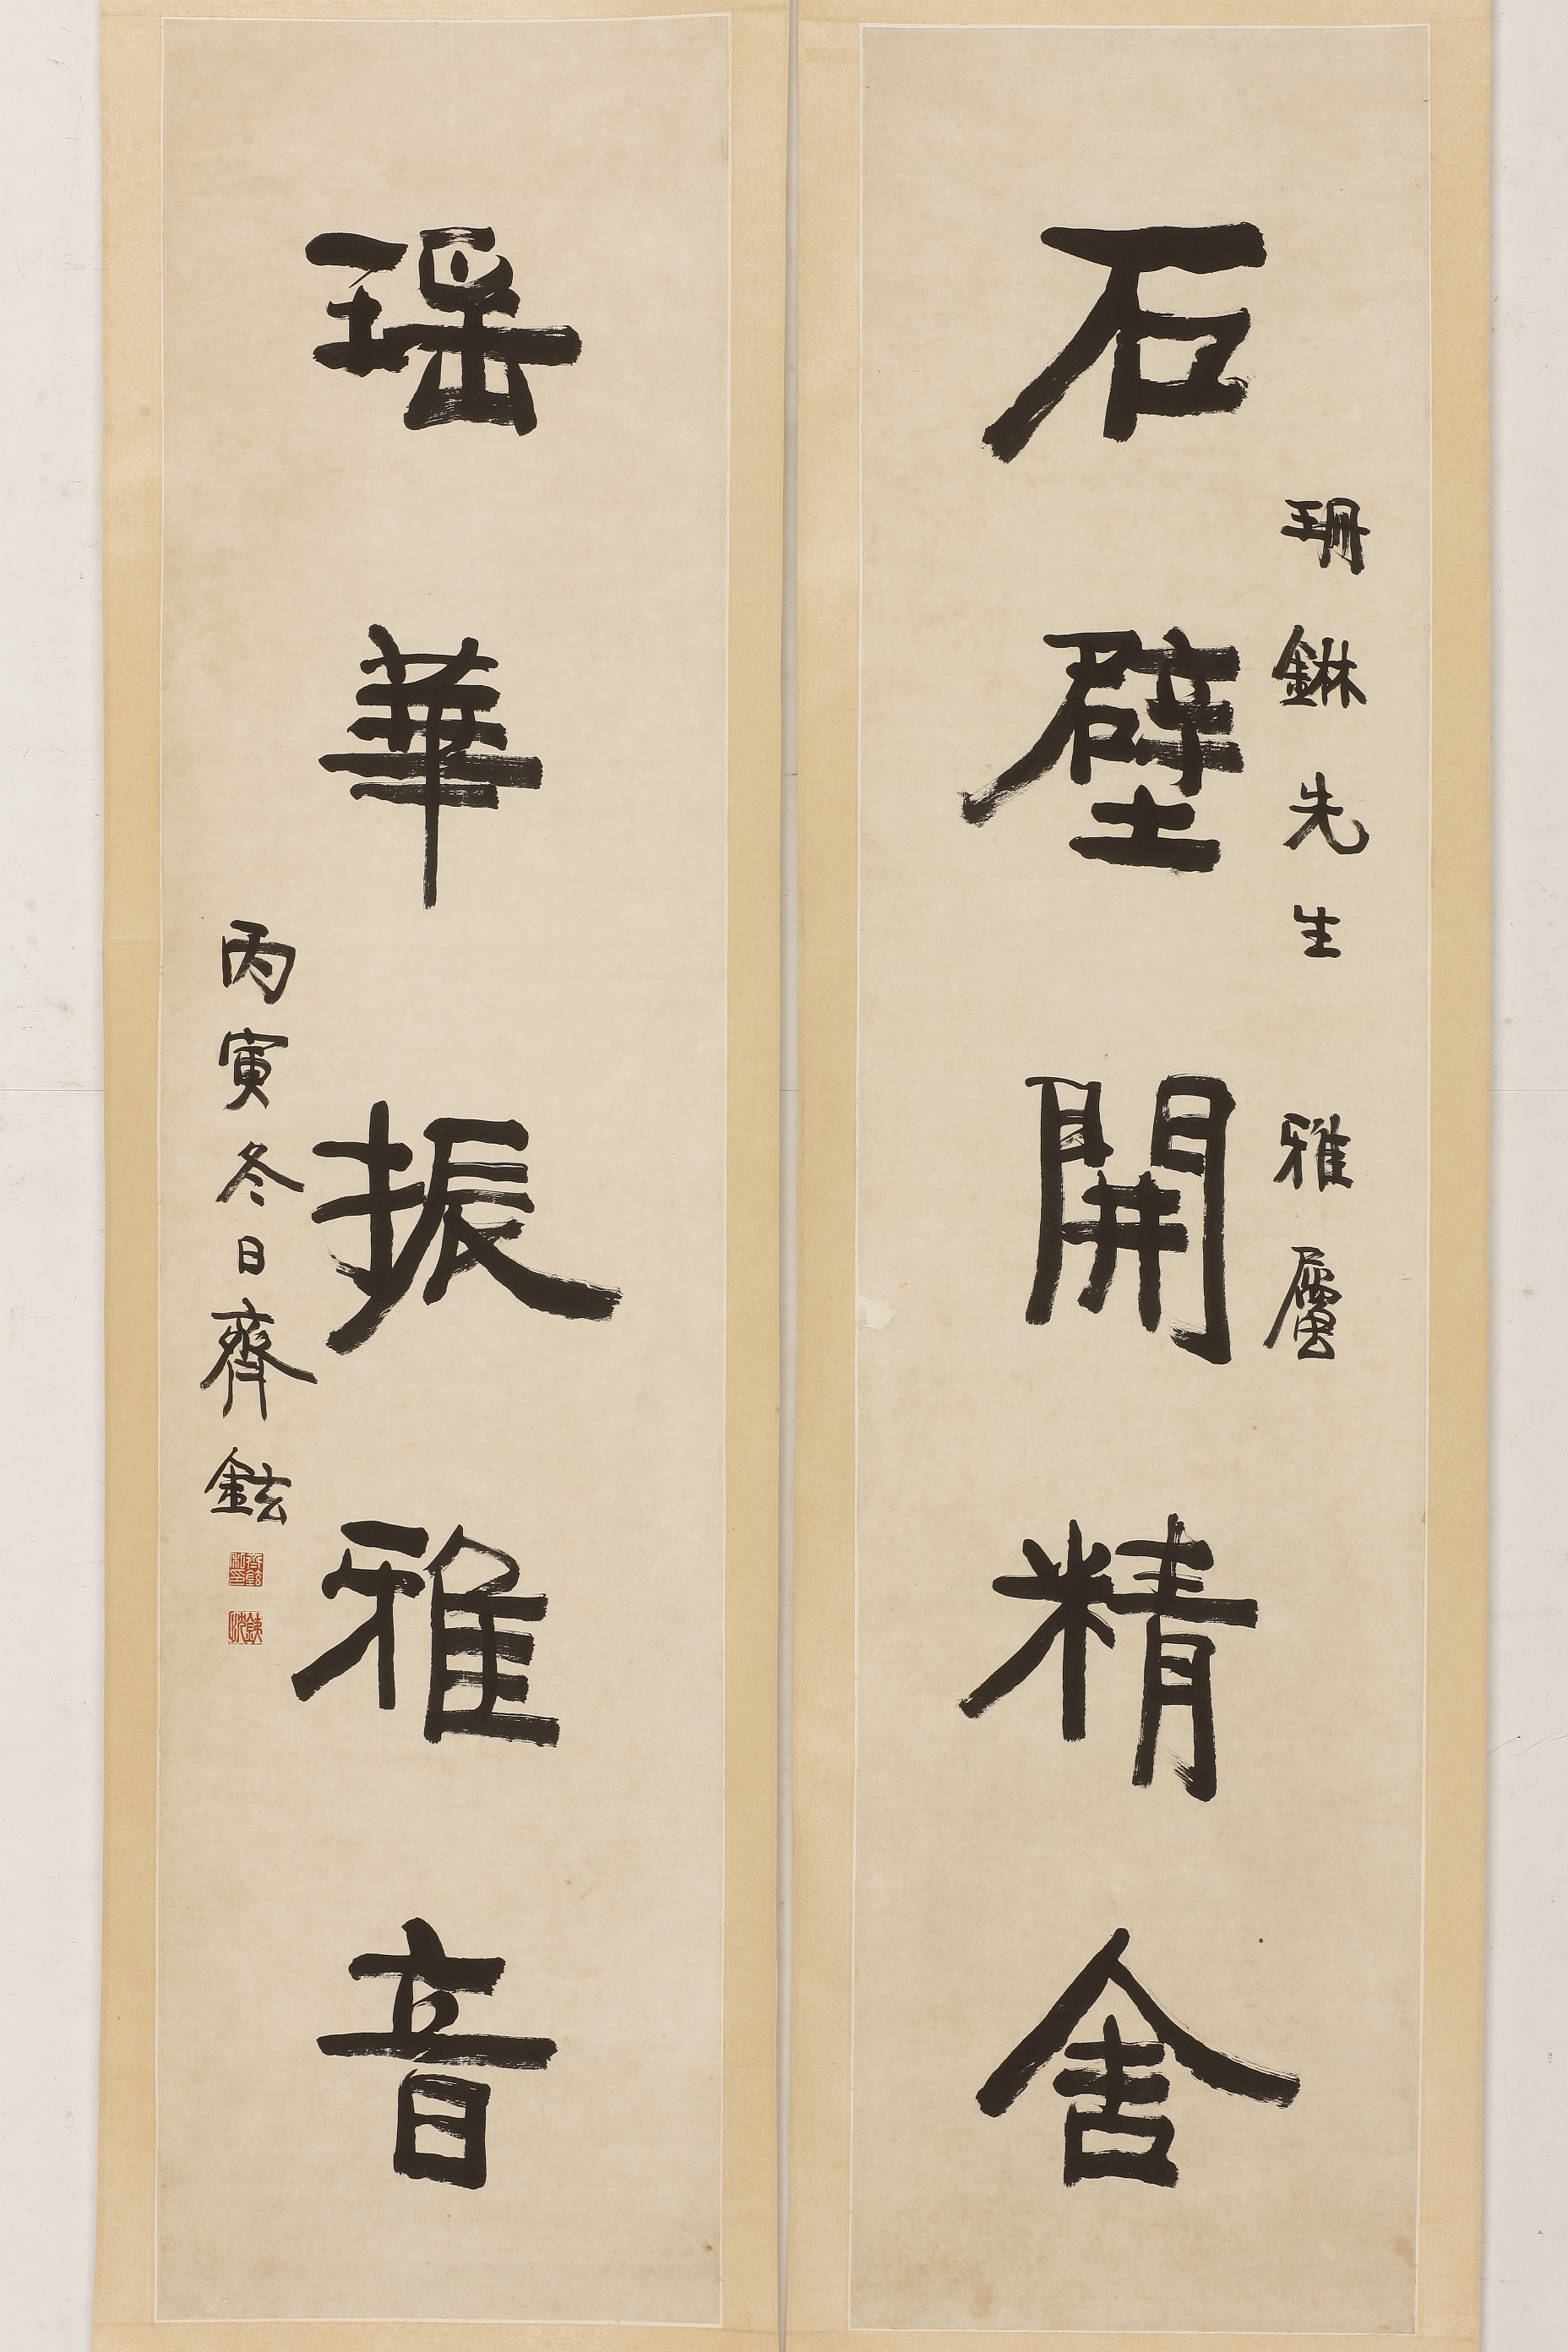 珊鉜先生 雅屬
石壁開精舍
瑤華振雅音
丙寅冬日齊鉉